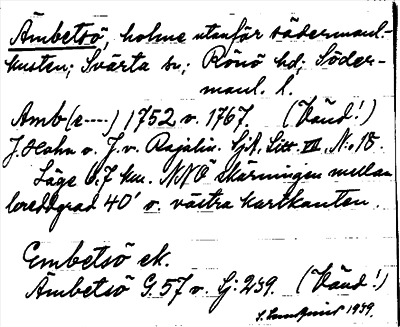 Ämbetsö, holme utanför södermanl.-
kusten; Svärta sn; Rönö hd; Söder-
manl. l.
Amb(e----) 1752 o. 1767. (Vänd!)
J. Hahn o. J. v. Rajalin. SjA. Litt. VII, N:o 18.
Läge 0.7 km. NNÖ skärningen mellan
breddgrad 40' o. västra kartkanten.
Embetsö ek.
Ämbetsö G. 57 o. Sj: 239. (Vänd!)
1939.